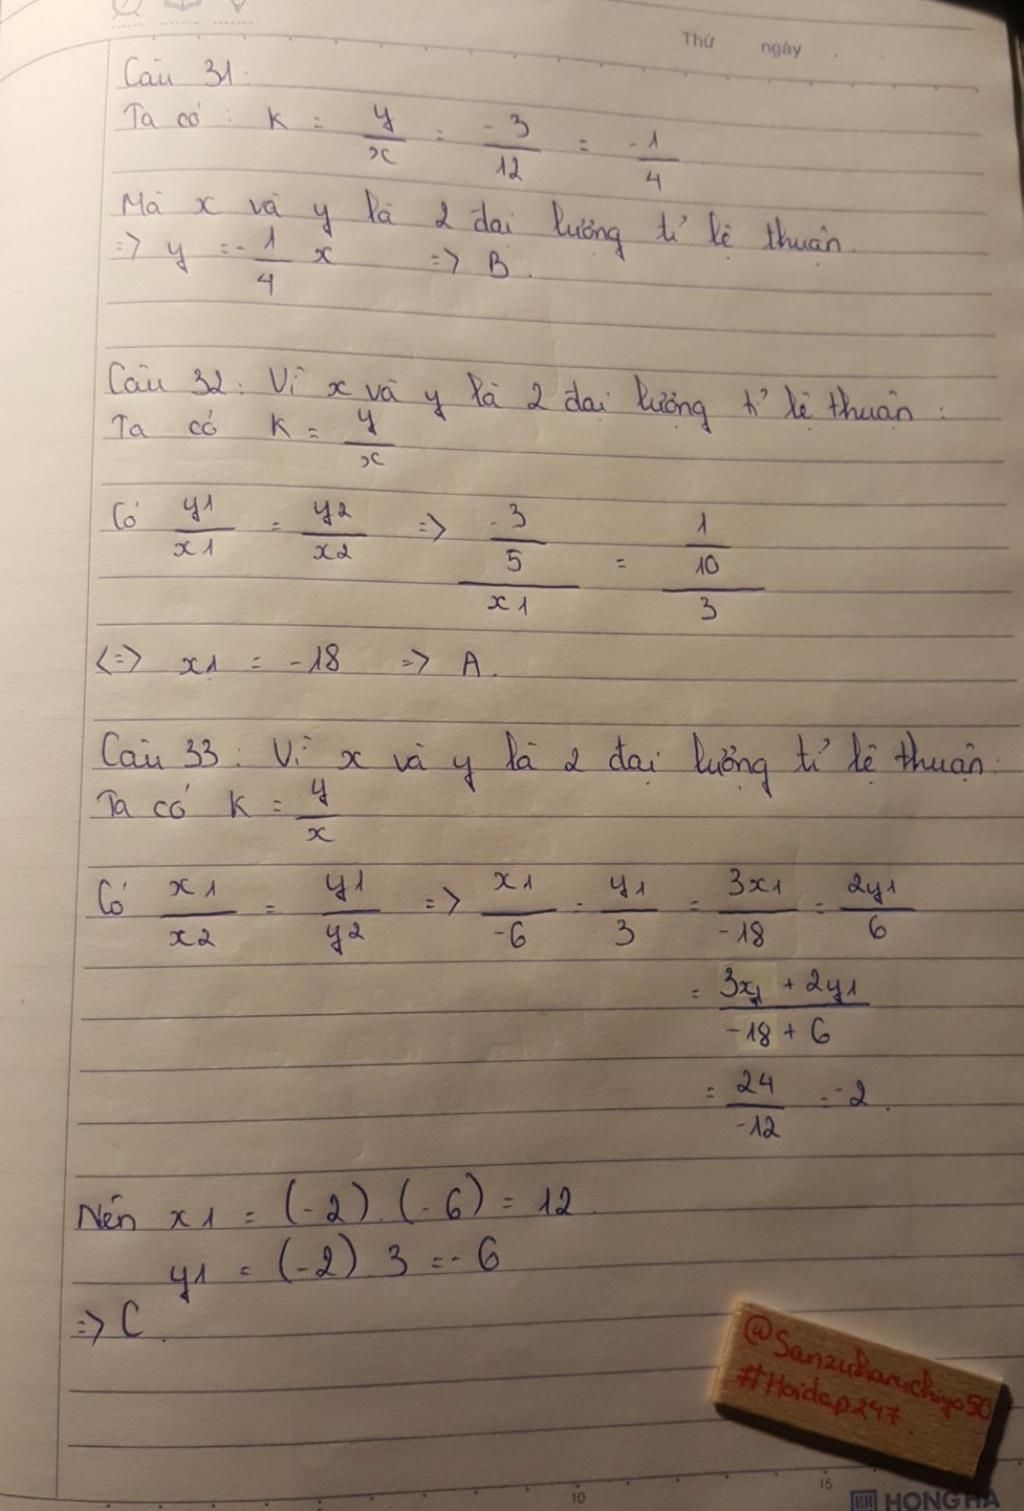 Thứ ngày
Câu 31:
Ta có: K = y/x = -3/12 = -1/4
Mà x và y là 2 đại lượng tỉ lệ thuận.
=> y = -1/4 x => B.
Câu 32: Vì x và y là 2 đại lượng tỉ lệ thuận:
Ta có K = y/x
Có y1/x1 = y2/x2 => (-3/5)/x1 = (1/10)/3
<=> x1 = -18 => A.
Câu 33: Vì x và y là 2 đại lượng tỉ lệ thuận:
Ta có K = y/x
Có x1/x2 = y1/y2 => x1/-6 = y1/3 = 3x1/-18 = 2y1/6
= (3x1 + 2y1)/(-18 + 6)
= 24/-12 = -2.
Nên x1 = (-2).(-6) = 12
y1 = (-2).3 = -6
=> C.
@Sanzuharuchiyo50
#Hoidap247
10 15
HONG HA